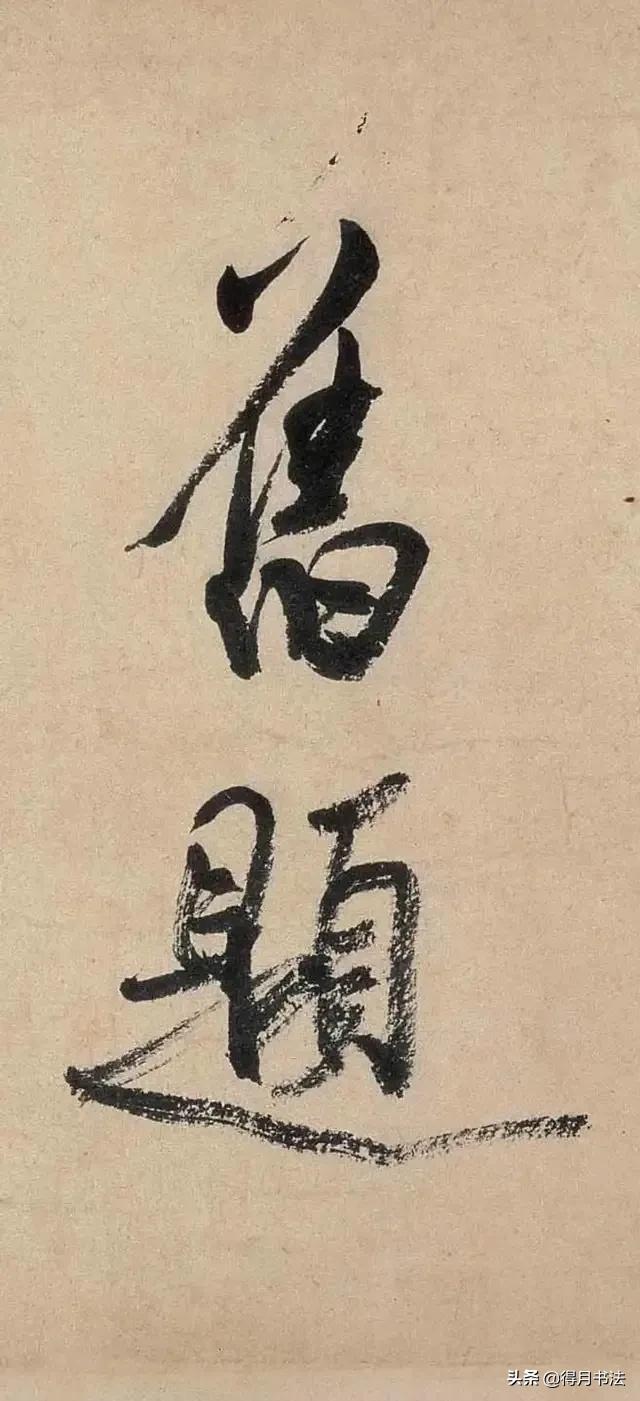 舊題
头条 @得月书法